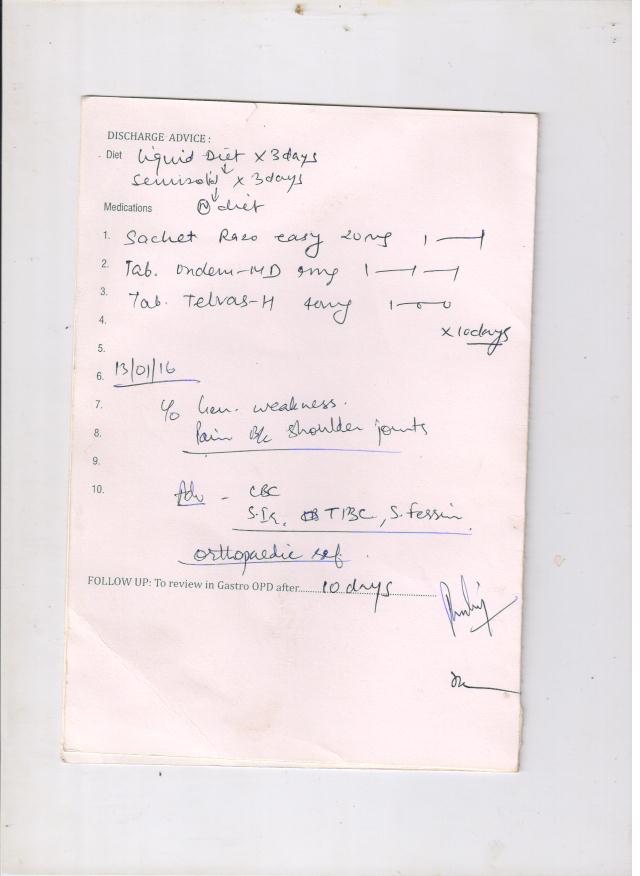 DISCHARGE ADVICE :
Diet Liquid Diet x 3 days
↓
semisolid x 3 days
↓
Medications Ⓝ diet
1. Sachet Razo easy 20mg 1 — 1
2. Tab. Ondem-MD 1 — 1 — 1
3. Tab. Telvas-H 40mg 1 — 0 — 0
4. x 10 days
5.
6. 13/01/16
7. c/o Gen. weakness.
8. Pain B/L shoulder joints
9.
10. Adv - CBC
TIBC, S.
orthopaedic ref.
FOLLOW UP: To review in Gastro OPD after 10 days